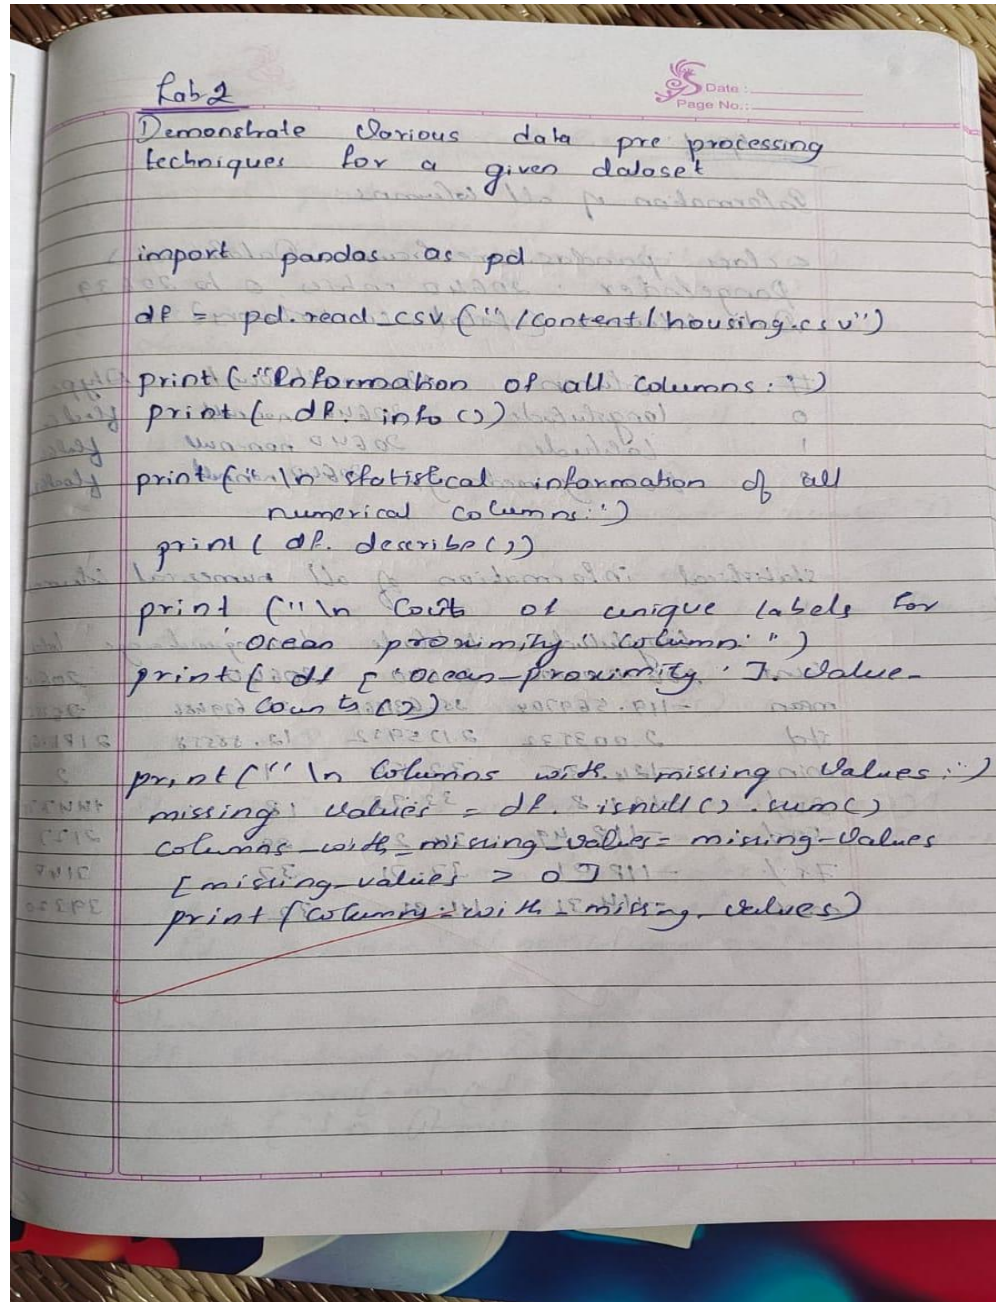 Lab 2
Date :
Page No.:
Demonstrate Various data pre processing
techniques for a given dataset
import pandas as pd
df = pd.read_csv("/content/housing.csv")
print("Information of all Columns:")
print( df. info ())
print("\n statistical information of all
numerical columns:")
print( df. describe())
print ("\n Count of unique labels for
'Ocean proximity' column:")
print( df [ 'ocean_proximity' ]. value_
counts())
print("\n Columns with missing Values:")
missing values = df. isnull() . sum()
columns_with_missing_values = missing-values
[missing-values > 0]
print (columns_with_missing_values)